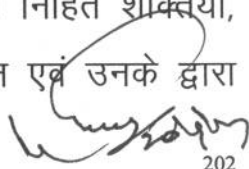 निहित शक्तियों,
एवं उनके द्वारा
202